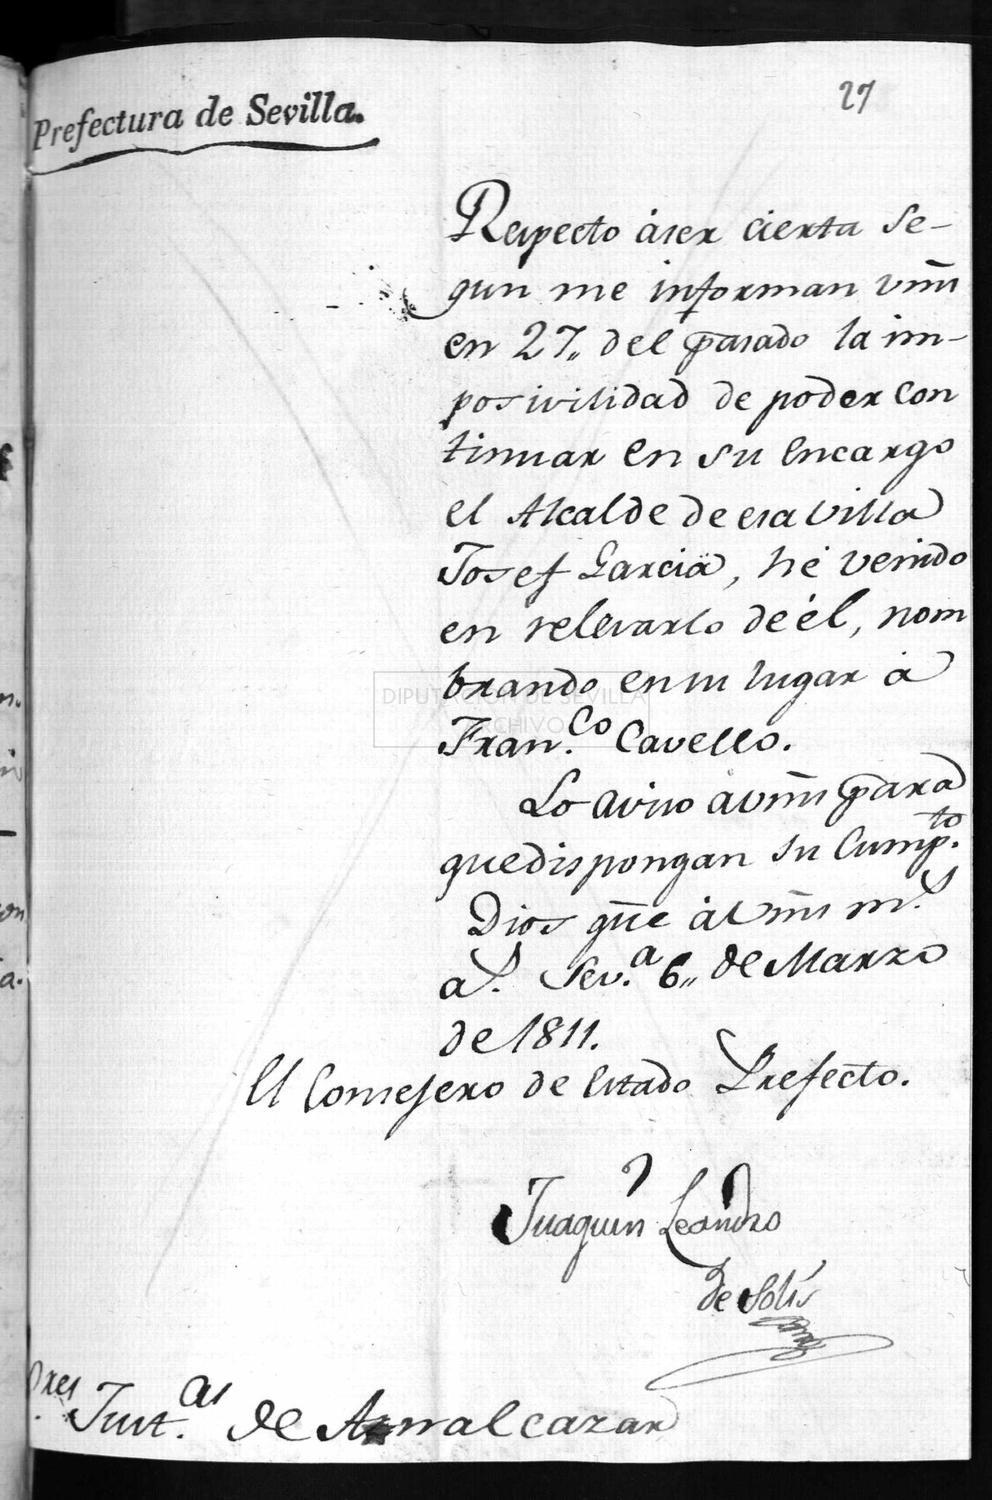 27
Prefectura de Sevilla.
Respecto à ser cierta se-
gun me informan vms
en 27,, del pasado la im-
posivilidad de poder con
tinuar en su encargo
el Alcalde de esa Villa
Josef Garcia, hé venido
en relevarlo de él, nom
brando en su lugar à
Fran.co Cavello.
Lo aviso à vms para
que dispongan su Cump.to
Dios gue à Vms m.s
a.s Sev.a 6,, de Marzo
de 1811.
El Consejero de Estado Prefecto.
Juaquin Leandro
de Solis
Sres Just.as de Aznalcazar
DIPUTACIÓN DE SEVILLA
ARCHIVO